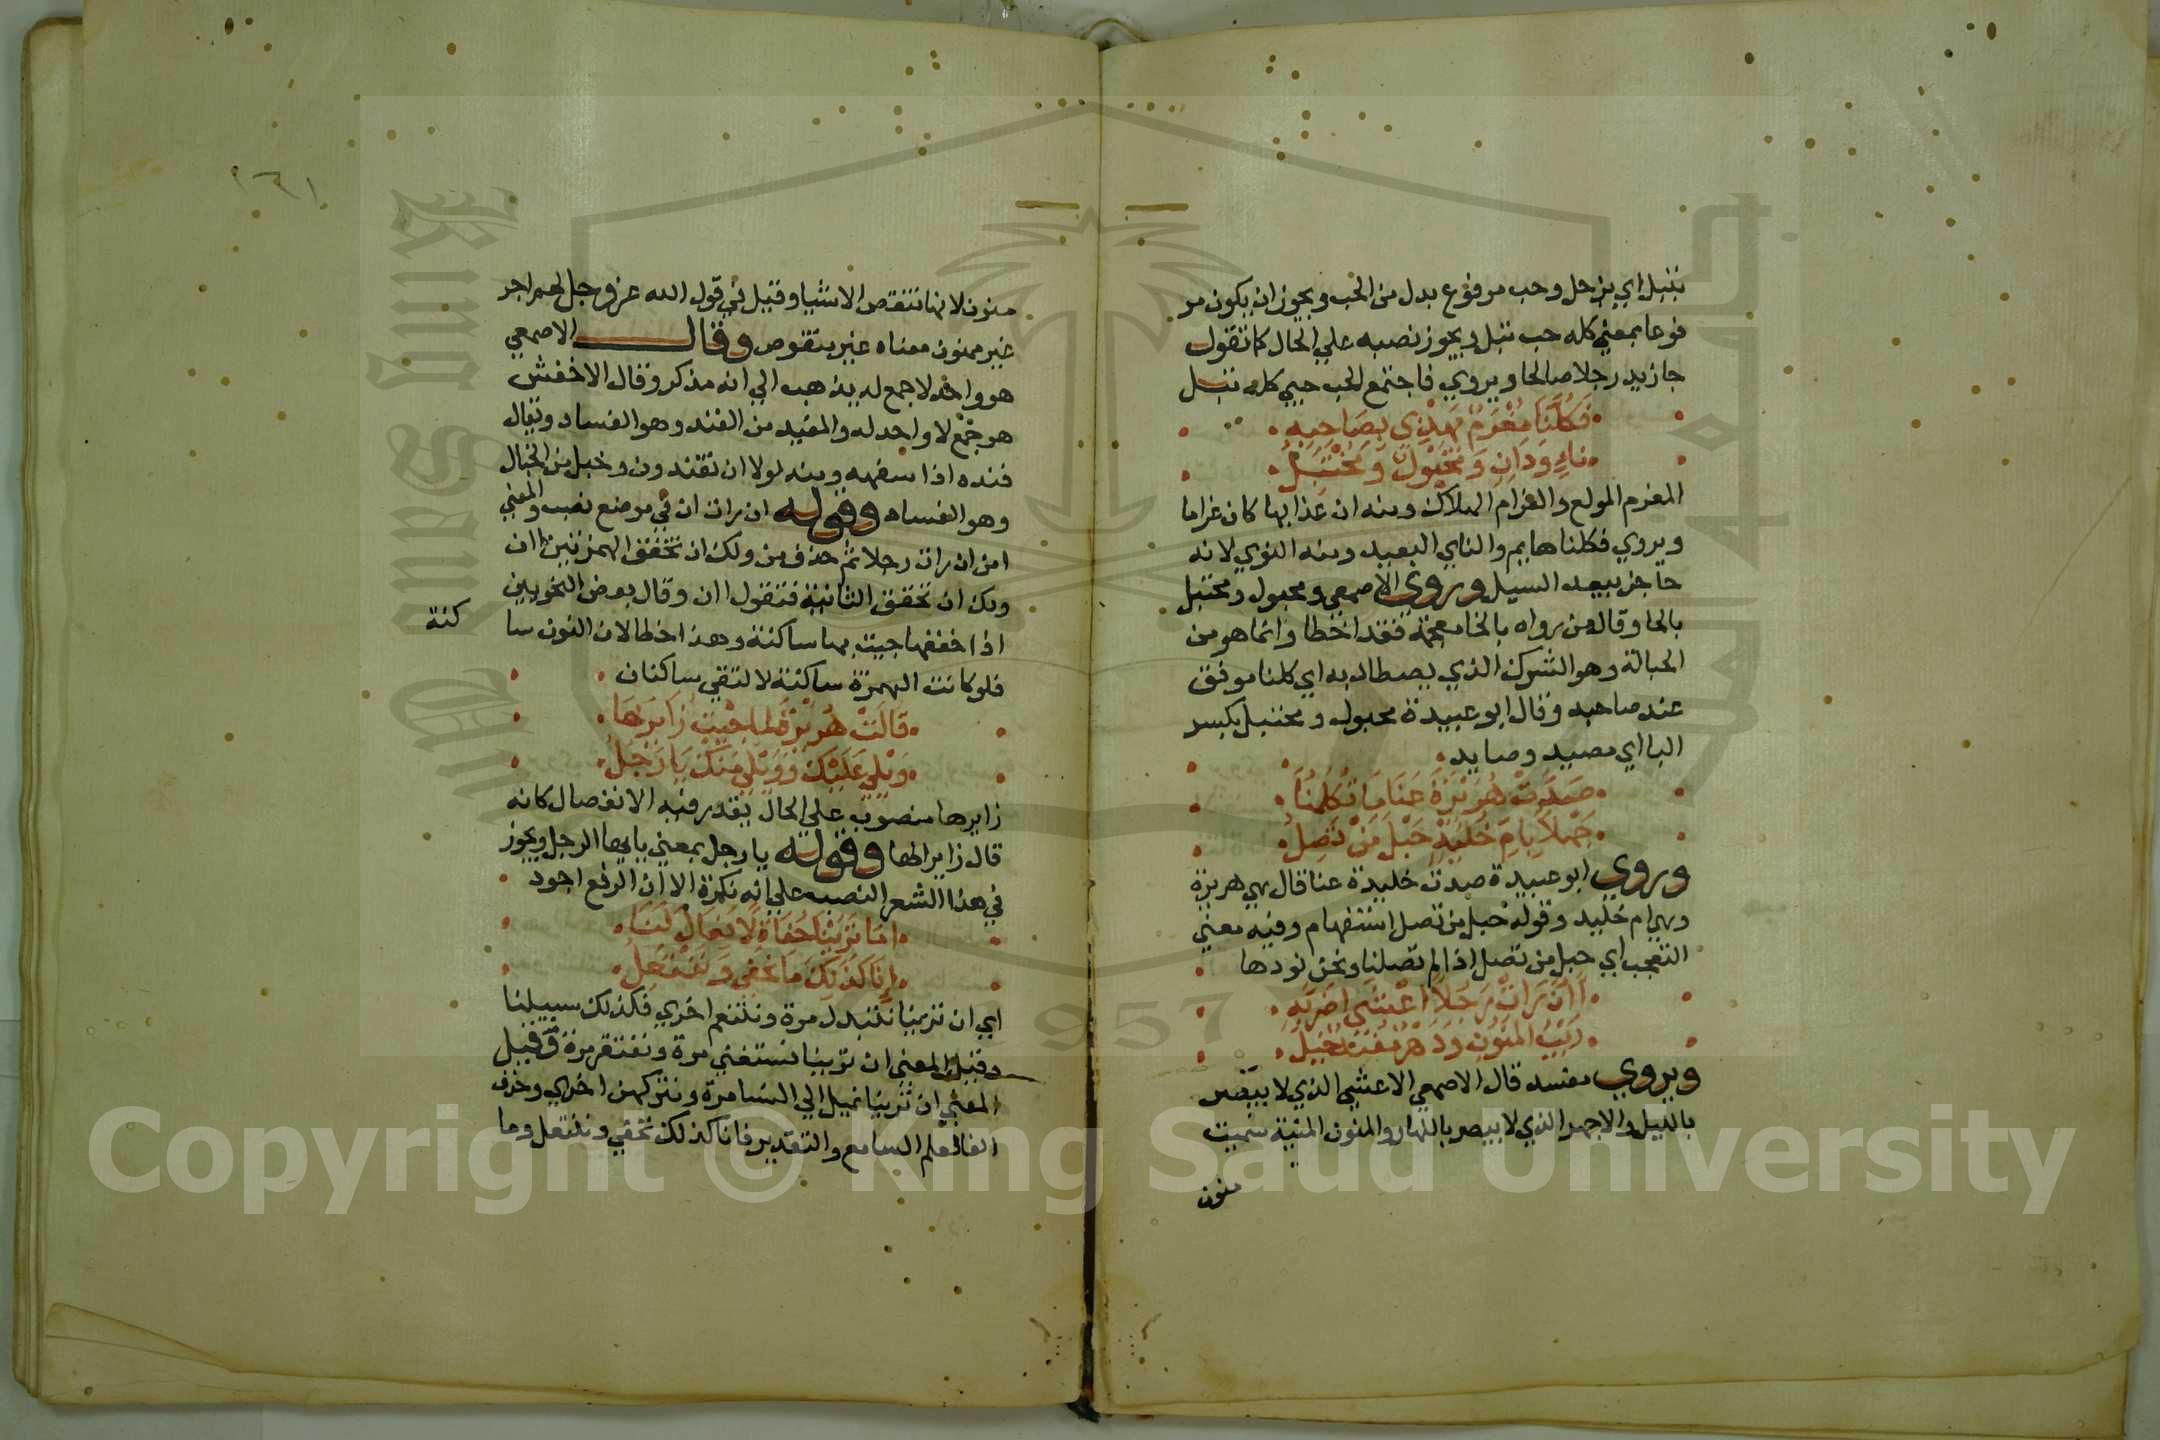 تبتل اي يزحل وحب مرفوع بدل من الحب ويجوز ان يكون مر
فوعا بمعني كله حب تبل ويجوز نصبه علي الحال كما تقول
جا زيد رجلا صالحا ويروي فاجتمع الحب حبي كله تبل
فكلنا مغرم يهذي بصاحبه
ناءٍ ودانٍ ومخبول ومختبل
المغرم المولع والغرام الهلاك ومنه ان عذابها كان غراما
ويروي فكلنا هايم والناي البعيد ومنه النوي لانه
حاجز يبعد السيل وروي الاصمعي ومحبول ومحتبل
بالحا وقال من رواه بالخا معجمة فقد اخطا وانما هو من
الحبالة وهو الشرك الذي يصطاد به اي كلنا موفق
عند صاحبه وقال ابو عبيدة محبول ومحتبل بكسر
البا اي مصيد وصايد
صدت هريرة عنا ما تكلمنا
جهلا بام خليد حبل من تصل
وروي ابو عبيدة صدت خليدة عنا قال هي هريرة
وهي ام خليد وقوله حبل من تصل استفهام وفيه معني
التعجب اي حبل من تصل اذا لم تصلنا ونحن نودها
اان رات رجلا اعشي اضر به
ريب المنون ودهر مفند خبل
ويروي مفسد قال الاصمعي الاعشي الذي لا يبصر
بالليل والاجهر الذي لا يبصر بالنهار والمنون المنية سميت
منون
١٦١
منون لانها تنقص الاشيا وقيل في قول الله عز وجل لهم اجر
غير ممنون معناه غير منقوص وقال الاصمعي
هو واحد لا جمع له يذهب الي انه مذكر وقال الاخفش
هو جمع لا واحد له والمفيد من الفند وهو الفساد ويقال
فنده اذا سفهه ومنه لولا ان تفندون وخبل من الخبال
وهو الفساد وقوله ان رات ان في موضع نصب والمعني
امن ان رات رجلا ثم حذف من ولك ان تخفف الهمزتين اان
ولك ان تخفف الثانية فتقول اان وقال بعض النحويين
اذا خففها جيت بها ساكنة وهذا خطا لان النون سا
كنة
فلو كانت الهمزة ساكنة لالتقي ساكنان
قالت هريرة لما جيت زايرها
ويلي عليك وويلي منك يا رجل
زايرها منصوب علي الحال يقدر فيه الانفصال كانه
قال زايرا لها وقوله يا رجل بمعني يا ايها الرجل ويجوز
في هذا الشعر النصب علي انه نكرة الا ان الرفع اجود
اما ترينا حفاة لا نعال لنا
انا كذلك ما نحفي وننتعل
اي ان ترينا نتبدل مرة ونتنعم اخري فكذلك سبيلنا
وقيل المعني ان ترينا نستغني مرة ونفتقر مرة وقيل
المعني ان ترينا نميل الي النسا مرة ونتركهن اخري وحذف
الفا لعلم السامع والتقدير فانا كذلك نحفي وننتعل وما
Copyright © King Saud University
King Saud University
1957